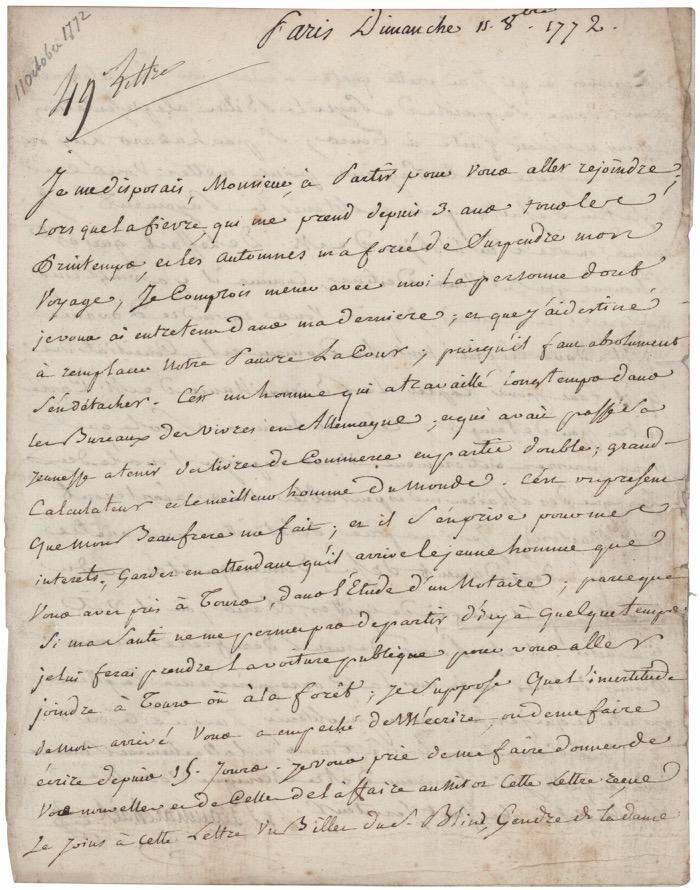 11 October 1772
Paris Dimanche 11. 8bre 1772.
49 Lettre
Je me disposais, Monsieur, à Partir pour Vous aller rejoindre,
Lorsque La fievre, qui me prend depuis 3. ans tous les
Printemps et Les automnes m'a forcé de Suspendre mon
Voyage, Je Comptois mener avec moi La personne dont
je vous ai entretenu dans ma derniere ; et que j'ai destiné
à remplacer Notre Pauvre La Cour ; puisqu'il faut absolument
S'en détacher. C'est un homme qui a travaillé longtemps dans
les Bureaux des Vivres en Allemagne, et qui avait passé Sa
jeunesse a tenir des livres de Commerce en partie double ; grand
Calculateur et le meilleur homme du Monde. C'est un present
Que Mon Beaufrere me fait ; et il S'en prive pour mes
interets, Gardez en attendant qu'il arrive le jeune homme que
Vous avez pris à Tours, dans l'Etude d'un Notaire ; parceque
Si ma Santé ne me permet pas de partir d'icy à quelque temps
je lui ferai prendre La voiture publique pour vous aller
joindre à Tours où à la forêt ; Je Suppose que l'incertitude
de mon arrivé Vous a empeché de M'écrire, ou de me faire
écrire depuis 15. Jours. Je vous prie de me faire donner de
Vos nouvelles et de Celles de l'affaire aussitot Cette Lettre reçue
Je Joins à Cette Lettre Un Billet du S. Gendre de la dame